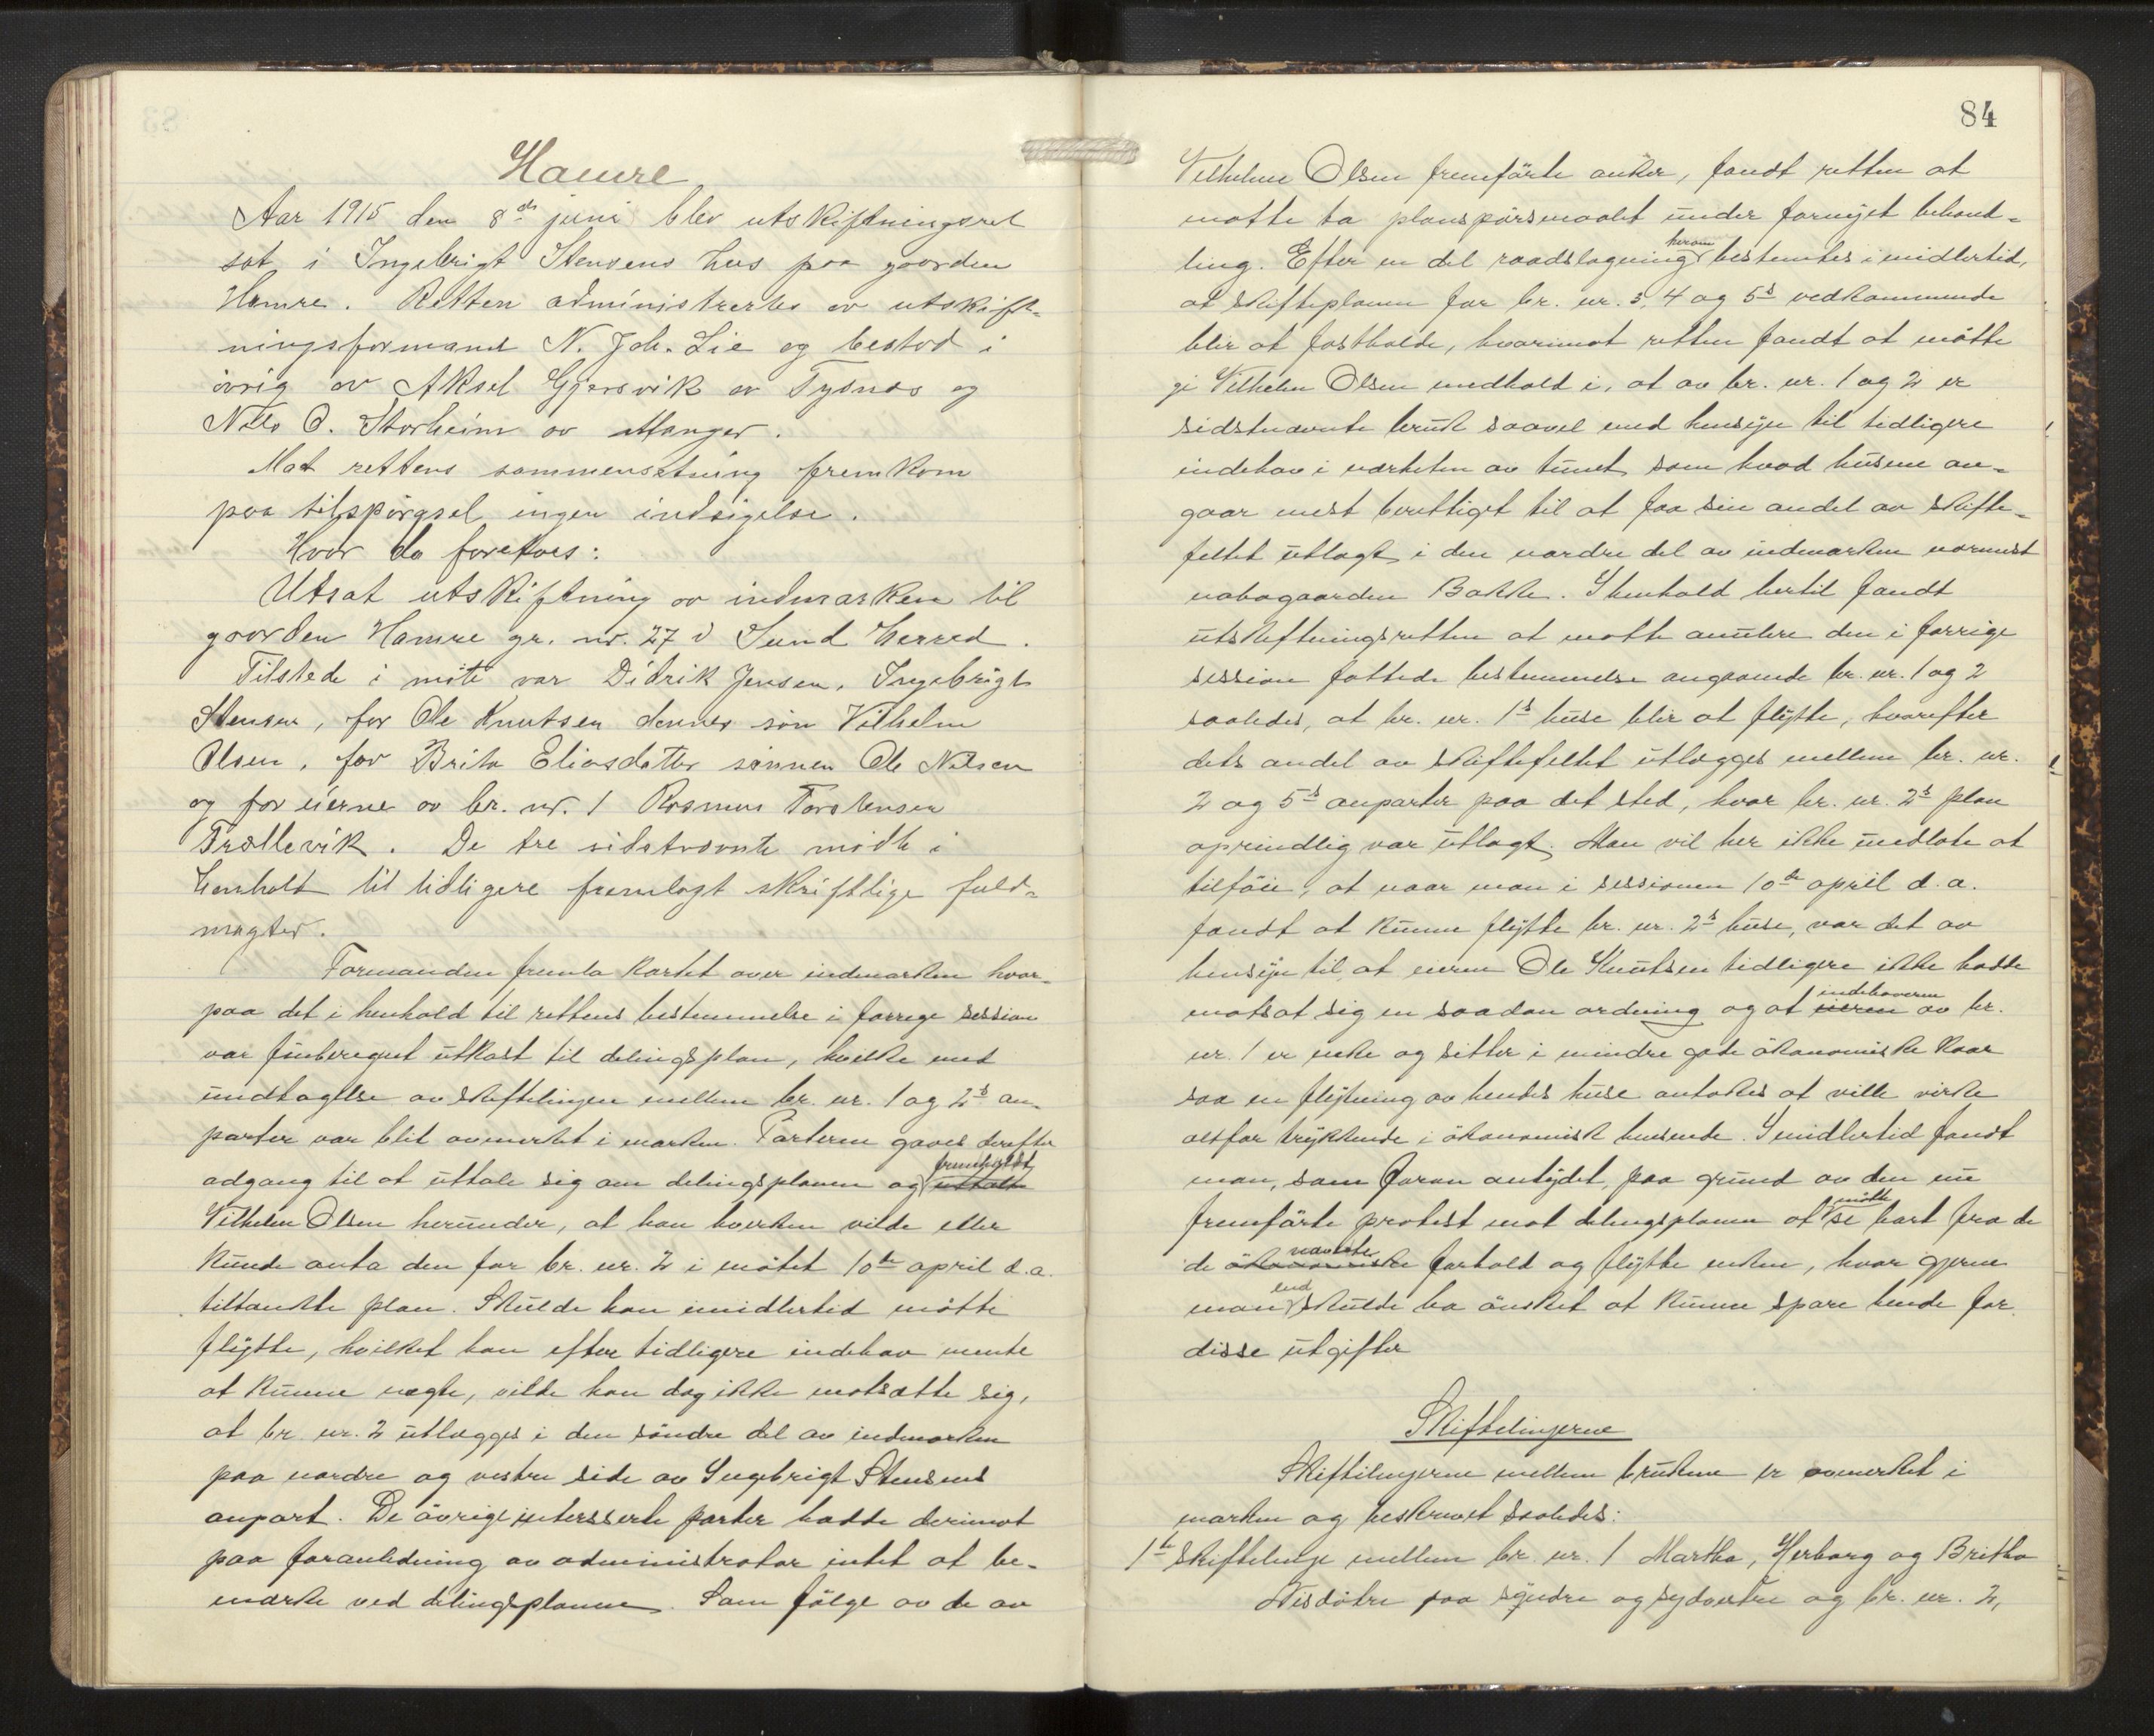 Hamre
Aar 1915 den 8de juni blev utskiftningsret
sat i Ingebrigt Stensens hus paa gaarden
Hamre. Retten administrertes av utskift-
ningsformand N. Joh. Lie og bestod i
övrig av Aksel Gjersvik av Tysnes og
Nils O. Storheim av Manger.
Mot rettens sammensætning fremkom
paa tilspörgsel ingen indsigelse.
Hvor da foretoes:
Utsat utskiftning av indmarken til
gaarden Hamre gr. nr. 27 i Sund herred.
Tilstede i möte var Didrik Jensen, Ingebrigt
Stensen, for Ole Knutsen dennes sön Vilhelm
Olsen, for Brita Eliasdatter sönnen Ole Nilsen
og for eierne av br. nr. 1 Rasmus Torstensen
Trællevik. De tre sidstnævnte mödte i
henhold til tidligere fremlagt skriftlige fuld-
magter.
Formanden fremla kartet over indmarken hvor-
paa det i henhold til rettens bestemmelse i forrige session
var finberegnet utkast til delingsplan, hvilke med
undtagelse av skiftelinjen mellem br. nr. 1 og 2s an-
parter var blit avmerket i marken. Parterne gaves derefter
adgang til at uttale sig om delingsplanen og fremholdt uttalte
Vilhelm Olsen herunder, at han hverken vilde eller
kunde anta den for br. nr. 2 i mötet 10de april d.a.
tiltænkte plan. Skulde han imidlertid maatte
flytte, hvilket han efter tidligere indehav mente
at kunne negte, vilde han dog ikke motsætte sig,
at br. nr. 2 utlægges i den söndre del av indmarken
paa nordre og vestre side av Ingebrigt Stensens
anpart. De övrige interesserte parter hadde derimot
paa foranledning av administrator intet at be-
merke ved delingsplanen. Som fölge av de av
84
Vilhelm Olsen fremförte anker, fandt retten at
maatte ta planspörsmaalet under fornyet behand-
ling. Efter en del raadslagning herom bestemtes imidlertid,
at skifteplanen for br. nr. 3, 4 og 5s vedkommende
blir at fastholde, hvorimot retten fandt at maatte
gi Vilhelm Olsen medhold i, at av br. nr. 1 og 2 er
sidstnævnte bruk saavel med hensyn til tidligere
indehav i nærheten av tunet som hvad husene an-
gaar mest berettiget til at faa sin andel av skifte-
feltet utlagt i den nordre del av indmarken nærmest
nabogaarden Bakke. I henhold hertil fandt
utskiftningsretten at maatte anullere den i forrige
session fattede bestemmelse angaaende br. nr. 1 og 2
saaledes, at br. nr. 1s huse blir at flytte, hvorefter
dets andel av skiftefeltet utlægges mellem br. nr.
2 og 5s anparter paa det sted, hvor br. nr. 2s plan
oprindlig var utlagt. Man vil her ikke undlate at
tilföie, at naar man i sessionen 10de april d.a.
fandt at kunne flytte br. nr. 2s huse, var det av
hensyn til, at eieren Ole Knutsen tidligere ikke hadde
motsat sig en saadan ordning og at indehaveren eieren av br.
nr. 1 er enke og sitter i mindre gode ökonomiske kaar
saa en flytning av hendes huse antokes at ville virke
altfor trykkende i ökonomisk henseende. Imidlertid fandt
man, som foran antydet, paa grund av den nu
fremförte protest mot delingsplanen at maatte se bort fra de
de nævnte ökonomiske forhold og flytte enken, hvor gjerne
man end skulde ha önsket at kunne spare hende for
disse utgifter
Skiftelinjerne
Skiftelinjerne mellem brukene er avmerket i
marken og beskrevet saaledes:
1ste Skiftelinje mellem br. nr. 1 Martha, Herborg og Britha
Nisdötre paa söndre og sydvestre og br. nr. 2,